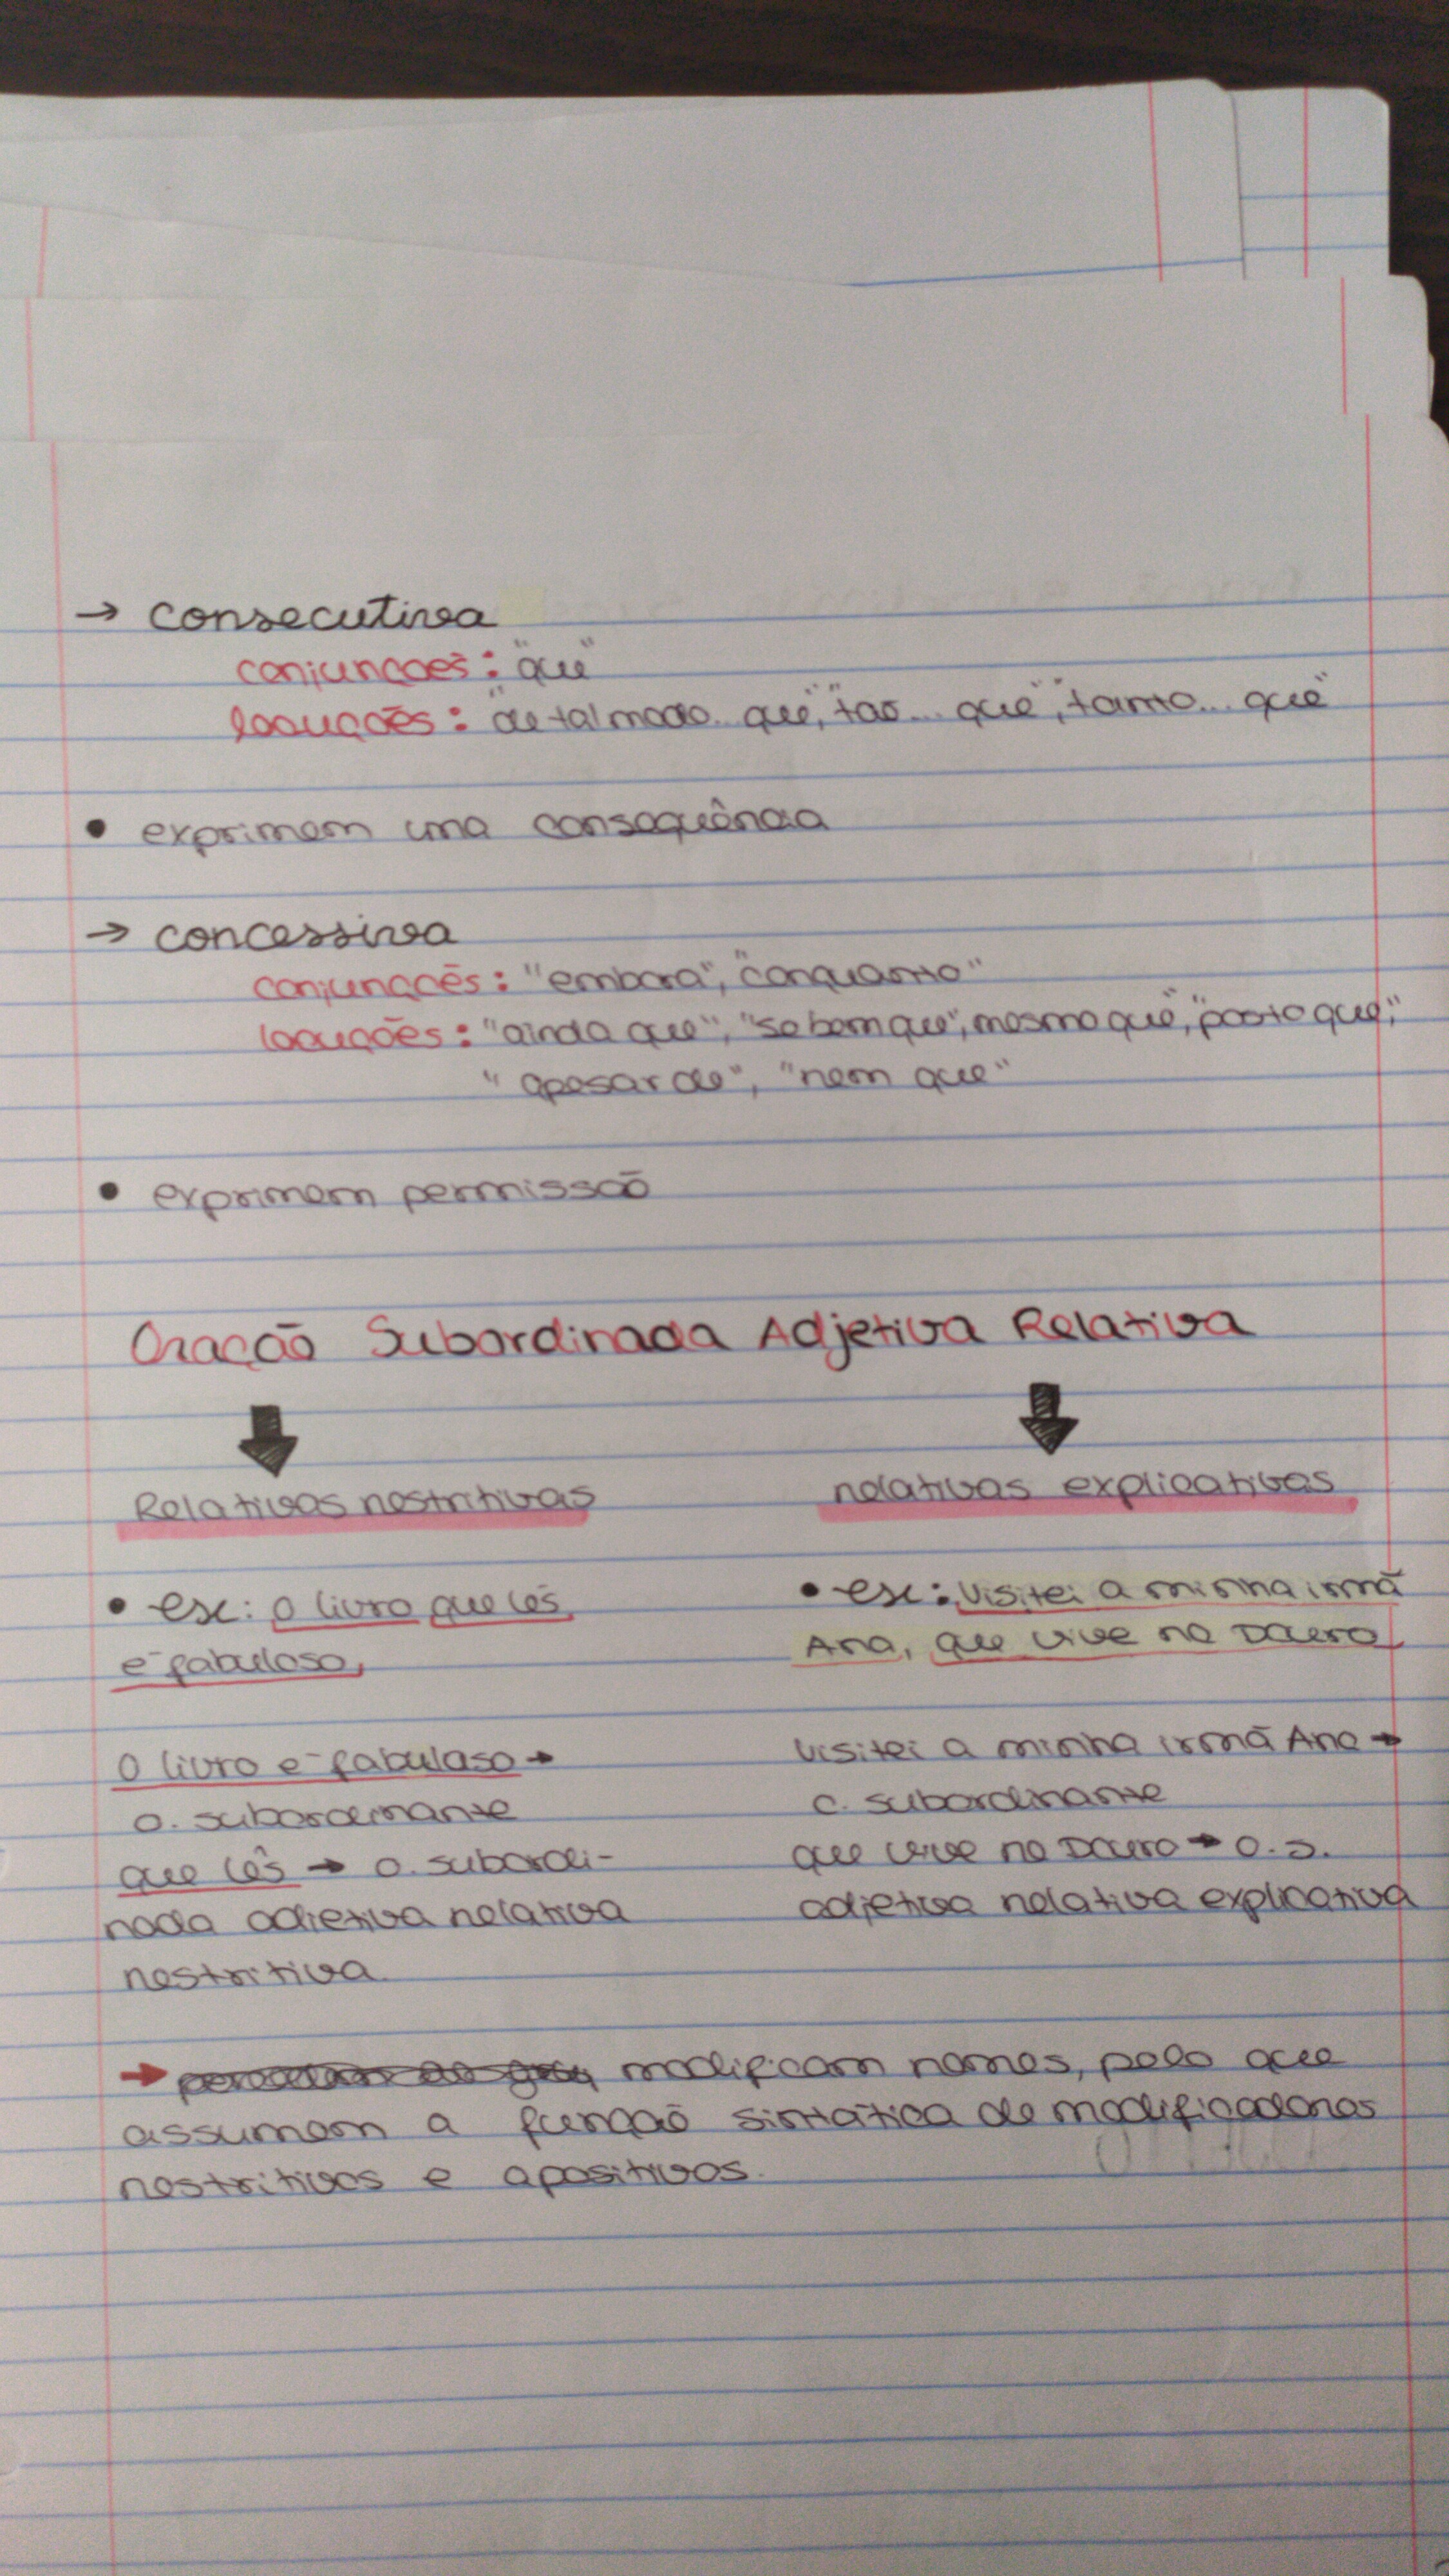 → consecutiva
conjunções: "que"
locuções: "de tal modo... que", "tão... que", "tanto... que"
• exprimem uma consequência
→ concessiva
conjunções: "embora", "conquanto"
locuções: "ainda que", "se bem que", "mesmo que", "posto que",
"apesar de", "nem que"
• exprimem permissão
Oração Subordinada Adjetiva Relativa
Relativas restritivas
• ex: O livro que lês
é fabuloso,
O livro é fabuloso →
o. subordinante
que lês → o. subordi-
nada adjetiva relativa
restritiva
relativas explicativas
• ex: Visitei a minha irmã
Ana, que vive no Douro
Visitei a minha irmã Ana →
o. subordinante
que vive no Douro → o. s.
adjetiva relativa explicativa
→ modificam nomes, pelo que
assumem a função sintática de modificadores
restritivos e apositivos.